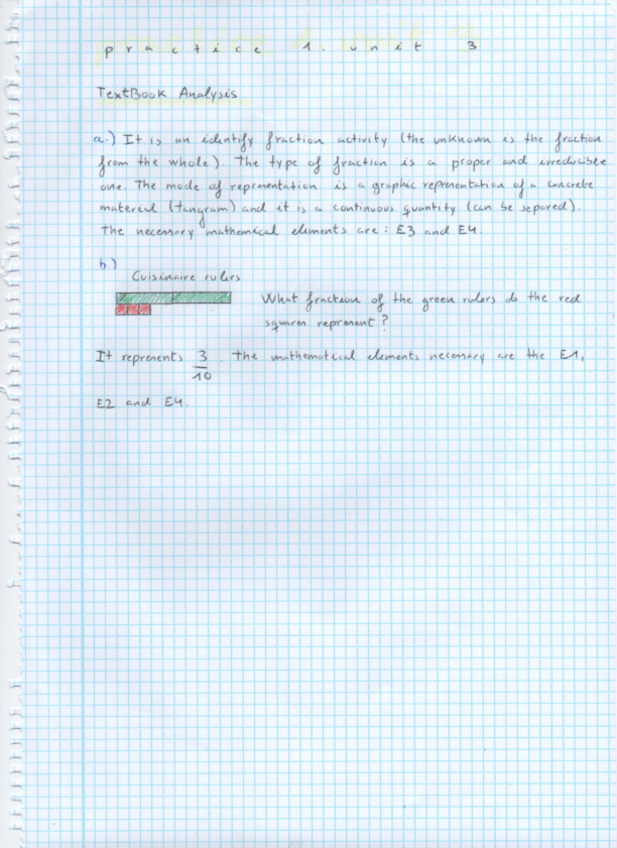 practice 1. unit 3
TextBook Analysis
a.) It is an identify fraction activity (the unknown is the fraction
from the whole). The type of fraction is a proper and irreducible
one. The mode of representation is a graphic representation of a concrete
material (tangram) and it is a continuous quantity (can be separed).
The necessary mathemical elements are: E3 and E4.
b.)
Cuisinaire rulers
What fraction of the green rulers do the red
squares represent?
It represents 3/10. The mathematical elements necessary are the E1,
E2 and E4.